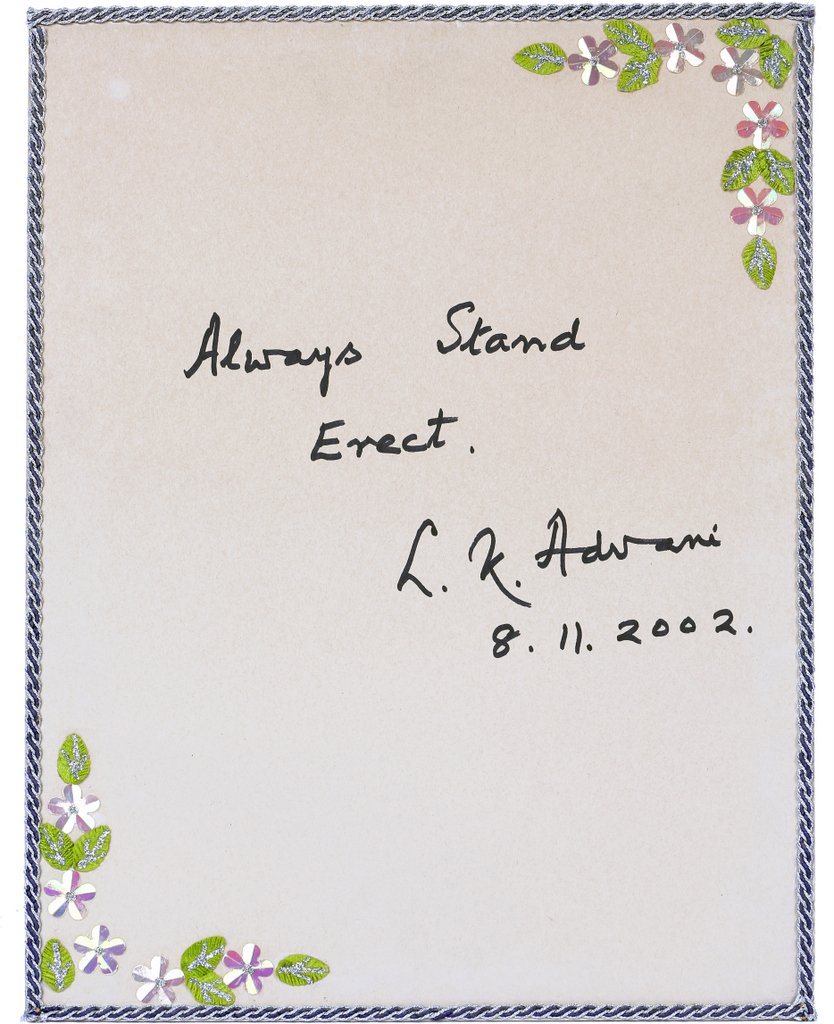 Always Stand
Erect.
L. K. Advani
8. 11. 2002.